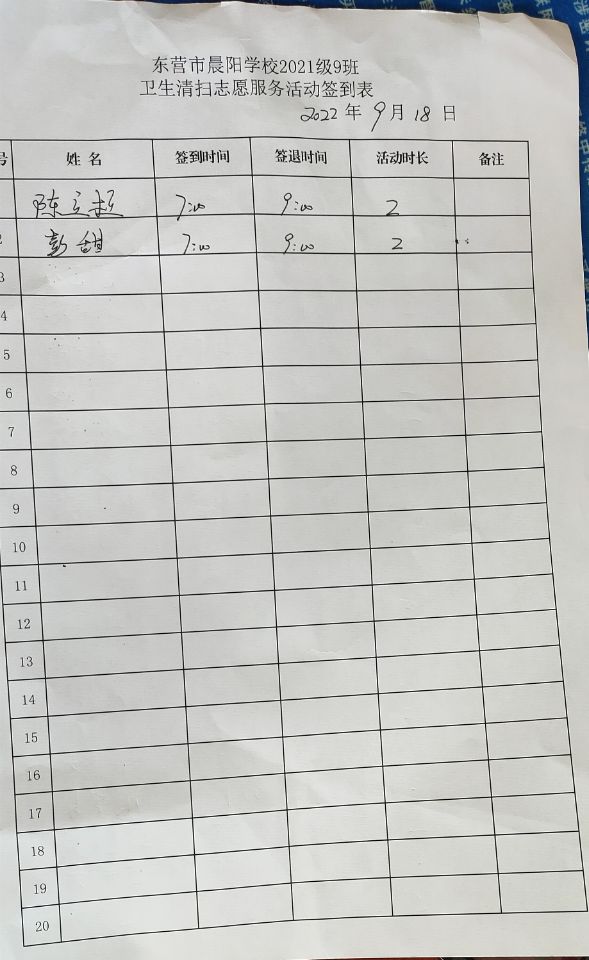 东营市晨阳学校2021级9班
卫生清扫志愿服务活动签到表
2022年9月18日
号 姓名 签到时间 签退时间 活动时长 备注
陈立 7:00 9:00 2
2 彭甜 7:00 9:00 2
3
4
5
6
7
8
9
10
11
12
13
14
15
16
17
18
19
20